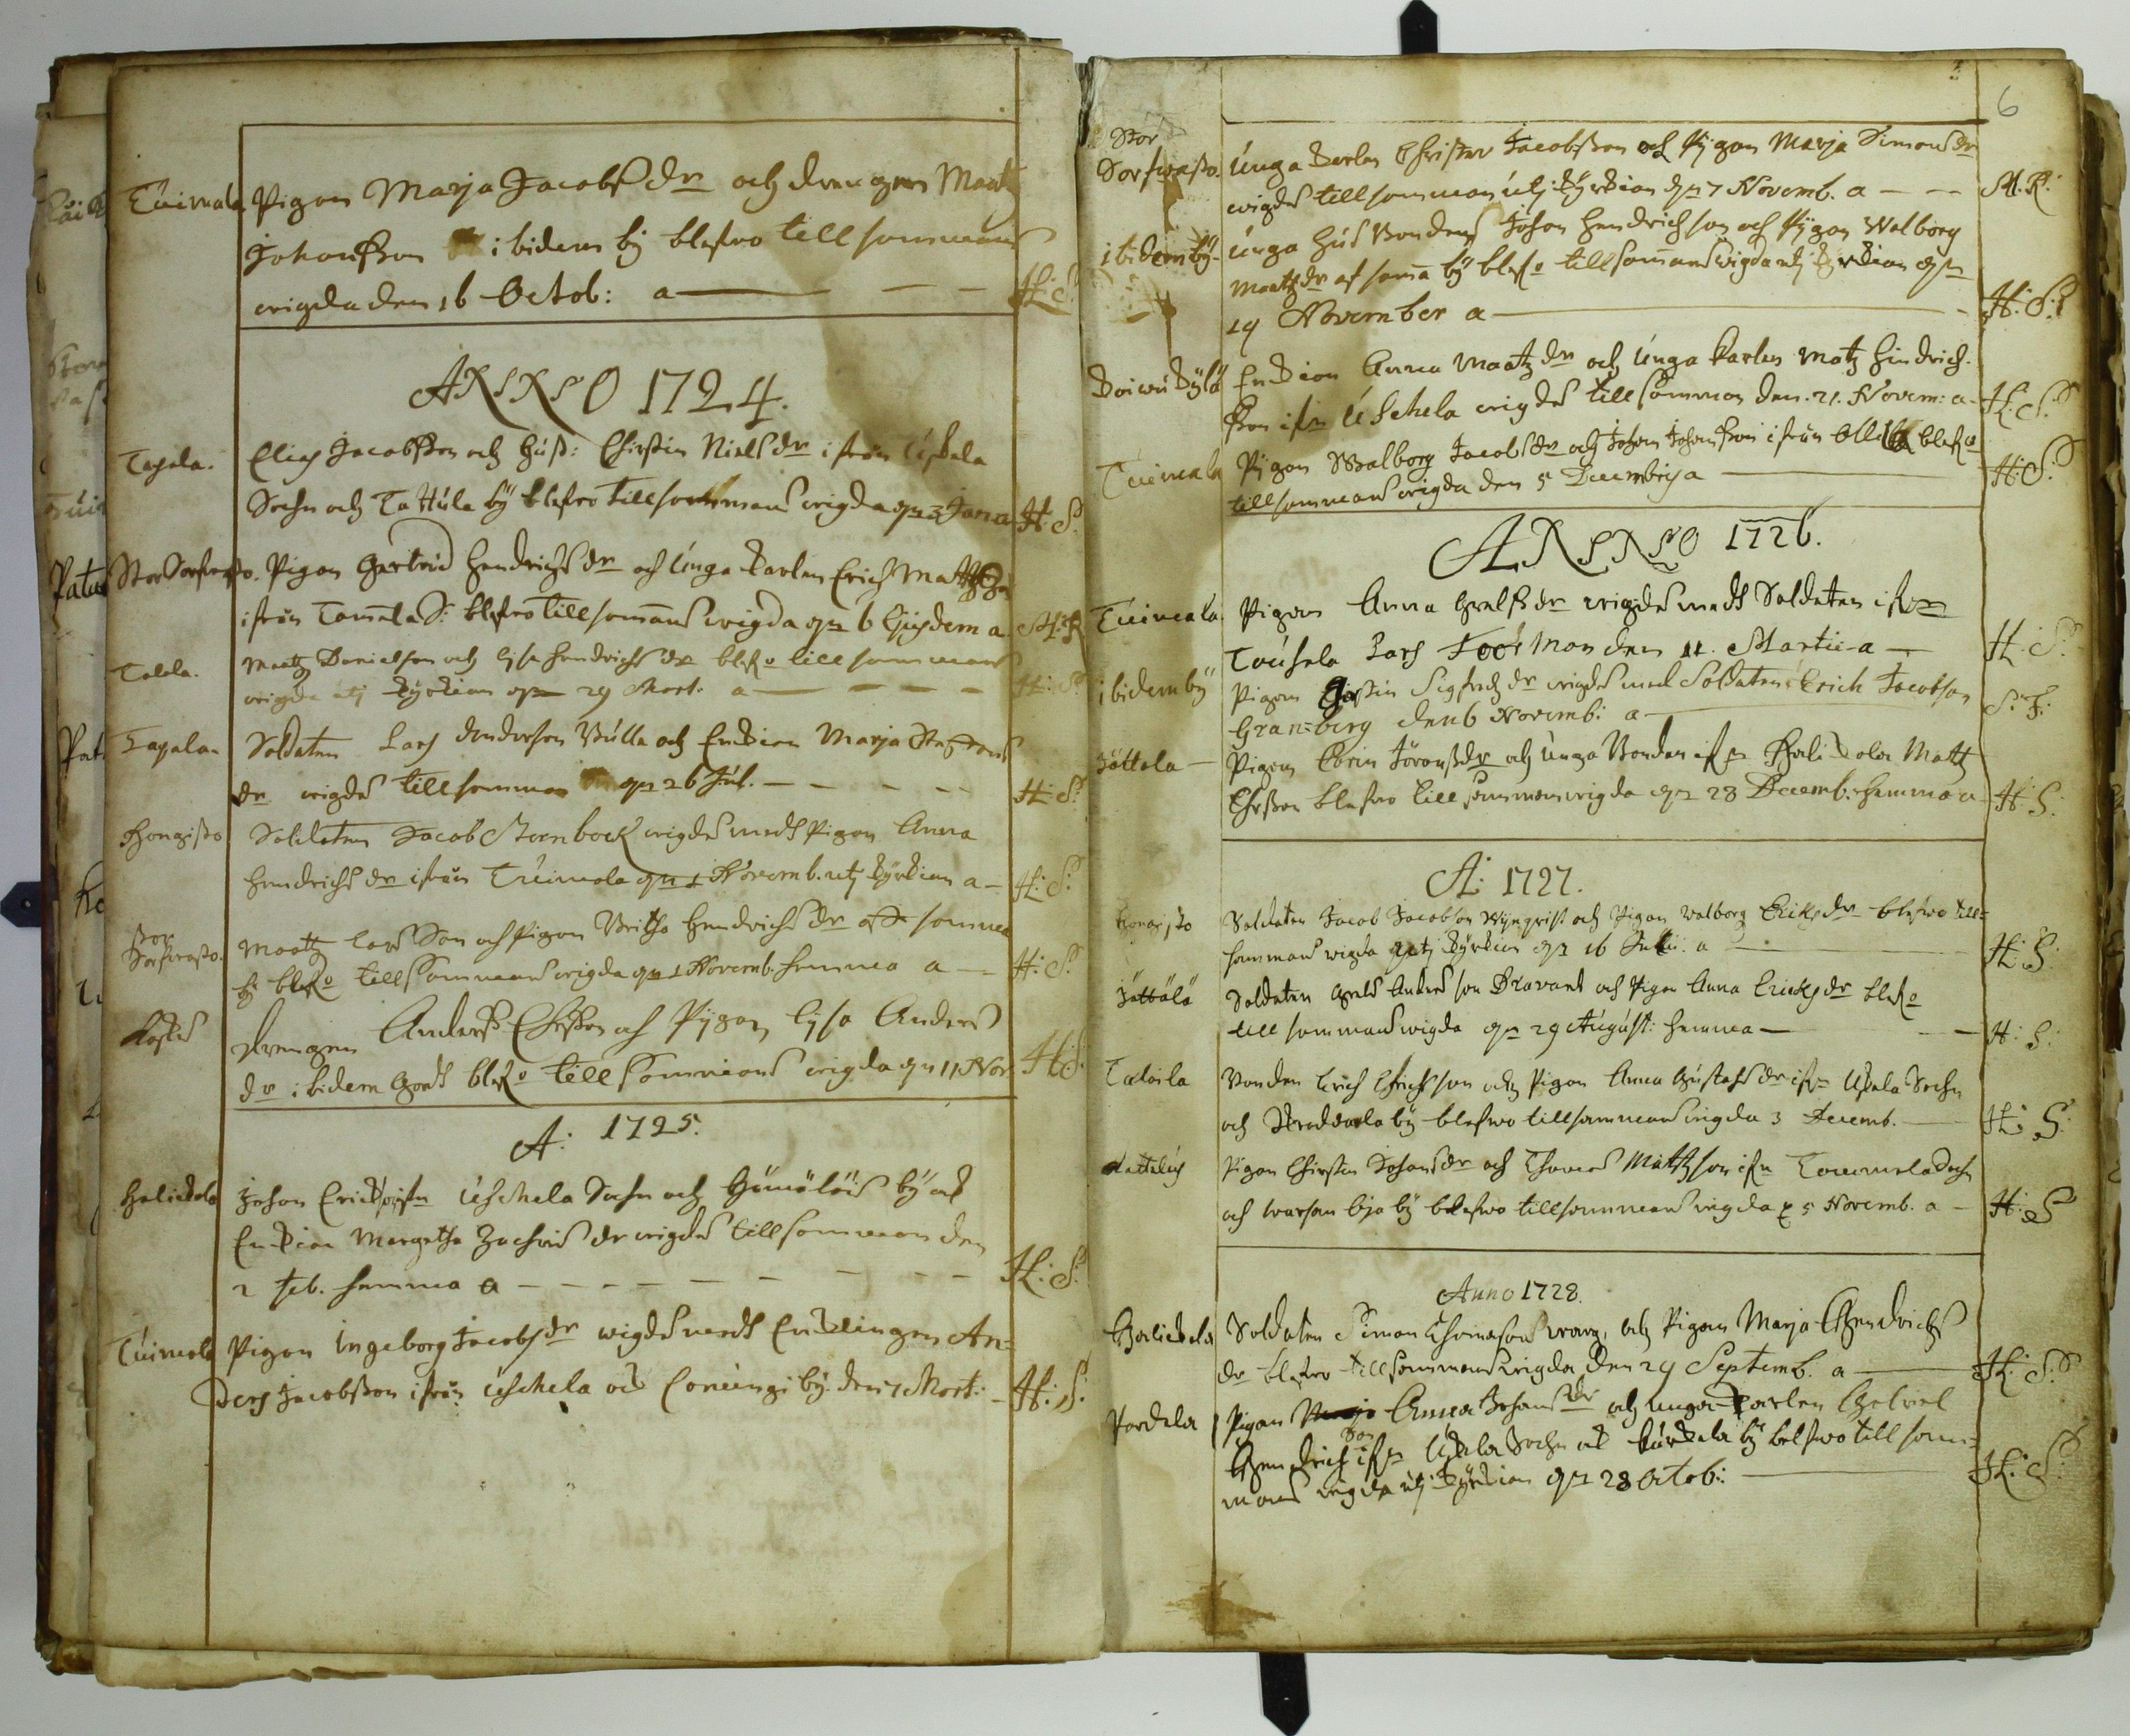 Tuimala Pigan Marja Jacobs dr och drengen Matz
Johansson ibidem by blefwo tillsammans
wigda den 16 Octob: a H: S:
ANNO 1724.
Tapala. Elias Jacobsson och Hust: Chirstin Niels dr ifrån Uskala
Sochn och Tattula by blefwo tillsammans wigda 3 Janu a H: S:
Stor Sorfwasto. Pigan Gertrud Hendrichs dr och Unga karlen Erich Matts
ifrån Tamela S: blefwo tillsammans wigda 6 Ejusdem a M: R
Talola. Matz Danielson och Lisa Hendrichs dr blefo tillsammans
wigda utj kyrkian 29 Mart: a H: S:
Tapalan Soldaten Lars Anderson Bulla och Enkian Marja
dr wigdes tillsamman 26 Jul. H: S:
Hongisto Soldaten Jacob Steenbock wigdes medh Pigan Anna
Hendrichs dr ifrån Tuimala 1 Novemb. utj kyrkian a H: S:
Stor
Sorfwasto. Matz Lars Son och Pigan Britha Hendrichs dr af samma
by blefo tillsammans wigda 1 Novemb. hemma a H: S:
Koskis Drengen Anders Ersson och Pigan Lisa Anders
dr ibidem Gordh blefo tillsammans wigda 11 Nov H: S:
A: 1725.
Halickola Johan Erickson ifrn Uschela Sochn och by och
Enkian Margetha Zachris dr wigdes tillsamman den
2 Feb. hemma a H: S:
Tuimala Pigan Ingeborg Jacobs dr wigdes medh Enklingen An=
ders Jacobsson ifrån Uschela och by. den 7 Mart: H: S:
6
Stor
Sorfwasto. Unga karlen Christer Jacobsson och Pigan Marja Simons dr
wigdes tillsamman utj kyrkian 7 Novemb. a M: R:
ibidem by. Unga Hus Bonden Johan Hendrichson och Pigan Walborg
Matz dr af samma by blefo tillsammans wigda utj kyrkian
14 November a H: S:
Koiwukylä Enkian Anna Maatz dr och Unga karlen Matz Hindrich
son ifrn Uschela wigdes tillsamman den 21. Novem: a H: S:
Tuimala Pigan Walborg Jacobs dr och Johan Johansson ifrån blefwo
tillsammans wigda den 5 Decembris a H: S:
ANNO 1726.
Tuimala. Pigan Anna Grels dr wigdes medh Soldaten ifrn
Tousala Lars man den 11. Martii a H: S:
ibidem by Pigan Chirstin Sigfredz dr wigdes med Soldaten Erich Jacobson
Gran=berg den 6 Novemb: a S: F:
Jättala Pigan Carin Jörans dr och Unga Bonden ifrn Halickola Mattz
Ersson blefwo tillsamman wigda 28 Decemb. hemma a H: S:
A: 1727.
Hongisto Soldaten Jacob Jacobson Wynqvist och Pigan Walborg Ericks dr blefwo till=
samman wigda utj kyrkian 16 a H: S:
Jättälä Soldaten Grels Anders son Dravant och Pigan Anna Ericks dr blefo
tillsammans wigda 29 August: hemma H: S:
Taloila Bonden Erich Erichsson och Pigan Anna Gustafs dr ifrn Uskala Sochn
och by blefwo tillsammans wigda 3 Decemb. H: S:
Lattalus Pigan Chirstin Johans dr och Thomas Mattsson ifrn Tammela Sochn
och by blefwo tillsammans wigda 5 Novemb. a H: S
Anno 1728.
Halickola Soldaten Simon Thomasson och Pigan Marja Hendrichs
dr blefwo tillsammans wigda den 29 Septemb. a H: S:
Pardala Pigan Anna Johans dr och unga karlen Gabriel
Hendrich son ifrn Uskala Sochn och kurkela by blefwo tillsam=
mans wigda utj kyrkian 28 Octob: H: S: